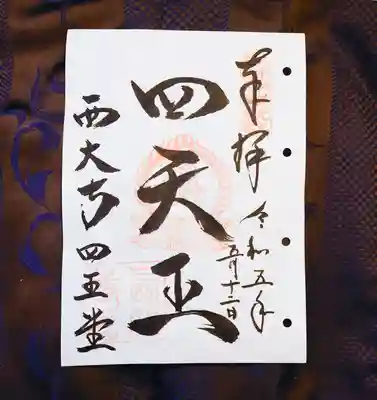 奉拝 令和五年
五月十二日
四天王
西大寺四王堂